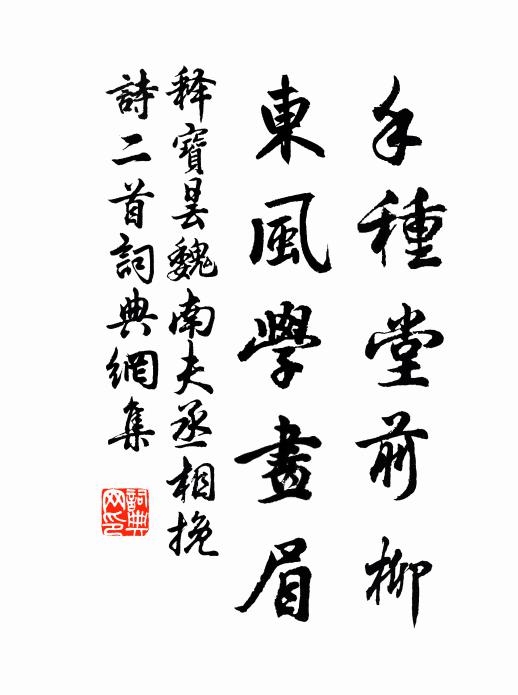 手種堂前柳
東風學畫眉
释寶曇魏南夫丞相挽
詩二首詞典網集
詞典網印